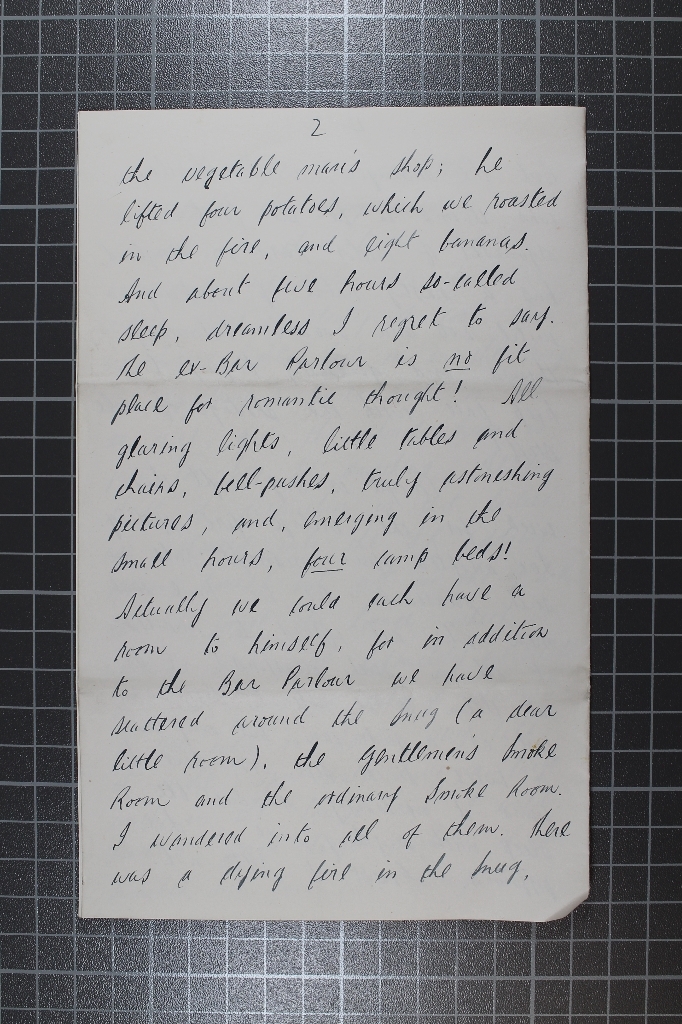 2
the vegetable man's shop; he
lifted four potatoes, which we roasted
in the fire, and eight bananas.
And about five hours so-called
sleep, dreamless I regret to say.
The ex-Bar Parlour is no fit
place for romantic thought! All
glaring lights, little tables and
chairs, bell-pushes, truly astonishing
pictures, and, emerging in the
small hours, four camp beds!
Actually we could each have a
room to himself, for in addition
to the Bar Parlour we have
scattered around the Snug (a dear
little room), the Gentlemen's Smoke
Room and the ordinary Smoke Room.
I wandered into all of them. There
was a dying fire in the Snug,